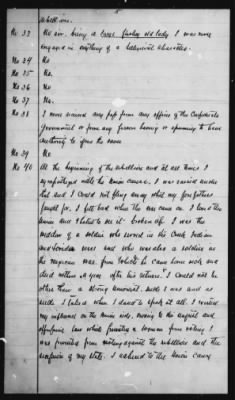 rebellion.
No 33 No sir, being a lame, fussy old lady, I was never
engaged in anything of a belligerent character.
No 34 No
No 35 No.
No 36 No
No 37 No.
No 38 I never received any pass from any officer of the Confederate
Government or from any person having or assuming to have
authority to give the same
No 39 No
No 40 At the beginning of the rebellion and at all times I
sympathized with the Union cause. I was raised under
it and I could not fling away what my forefathers
fought for. I felt bad when the war came on I loved the
Union and hated to see it broken up. I was the
widow of a soldier who served in the Creek Indian
and Florida wars and who was also a soldier in
the Mexican war, from which he came home sick and
died within a year after his return. I could not be
other than a strong Unionist, such I was and as
such I talked when I dared to speak at all. I exerted
my influence on the Union side, owing to the unjust and
oppressive law which prevents a woman from voting I
was prevented from voting against the rebellion and the
secession of my state. I adhered to the Union cause